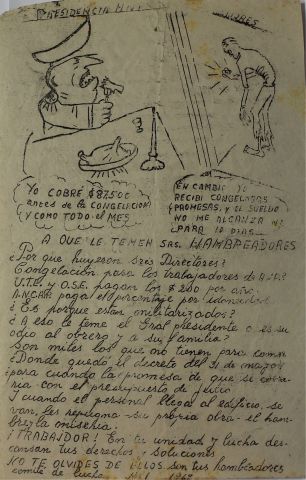 PRESIDENCIA
YO COBRÉ $ 8750€
ANTES DE LA CONGELACION
Y COMO TODO EL MES
EN CAMBIO YO
RECIBÍ CONGELADAS
PROMESAS, Y EL SUELDO
NO ME ALCANZA NI
PARA 10 DIAS
A QUE LE TEMEN SRS. HAMBREADORES
¿Por que huyeron sres Directores?
Congelación pasa los trabajadores de
U.T.E. y O.S.E. pagan los $ 250 por año
ANCAP paga el porcentaje por idoneidad
¿Es porque estan militarizados?
¿A eso le teme el Gral presidente o es su
odio al obrero y a su familia?
Son miles los que no tienen para comer
¿Donde quedó el decreto del 31 de mayo?
¿para cuando la promesa de que se cobra-
ria con el presupuesto de Julio
Y cuando el personal llega al edificio, se
van, les repugna su propia obra - el ham-
bre y la miseria.
¡TRABAJADOR! En tu unidad y lucha des-
cansan tus derechos y soluciones
NO TE OLVIDES DE ELLOS, son tus hambreadores
comité de lucha 1968